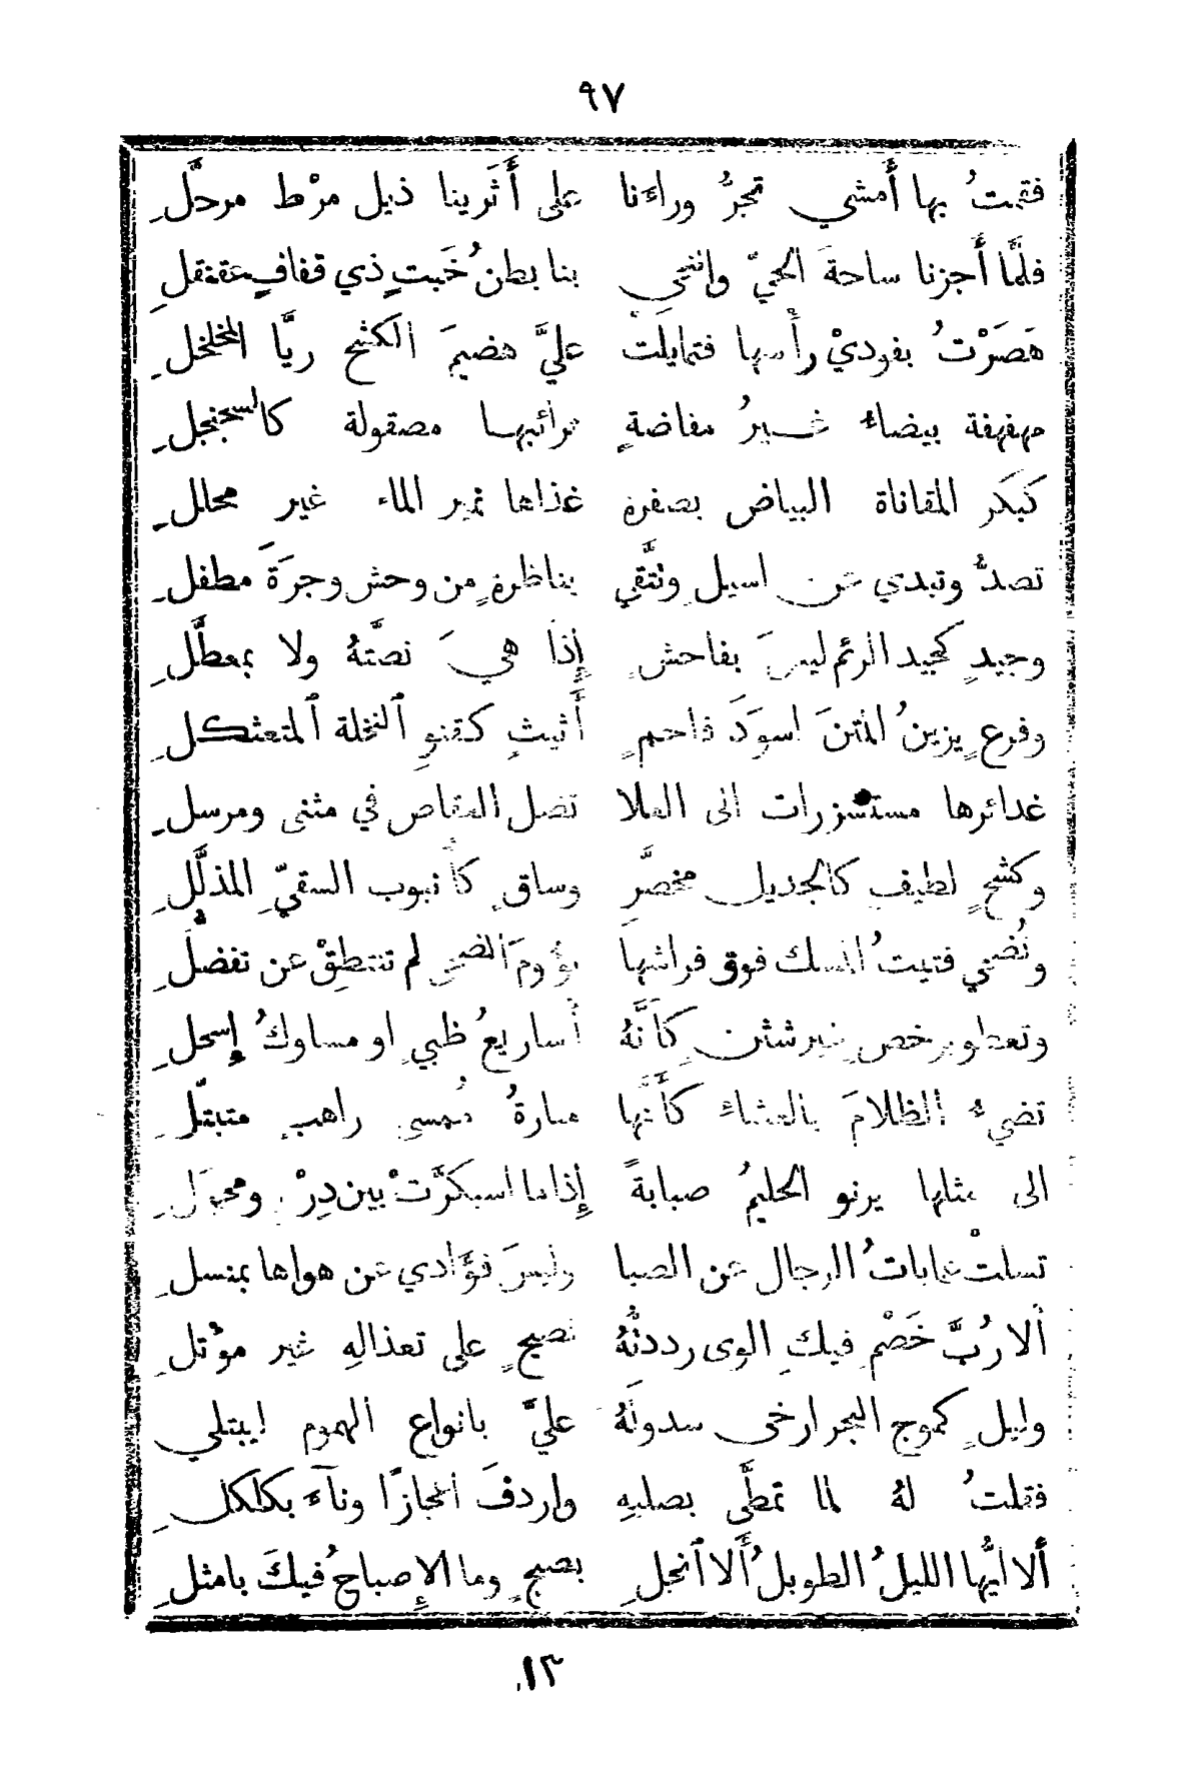 ٩٧
فقمتُ بها أَمشي تجرُّ وراءَنا على أَثَرينا ذيل مرْط مرحَّلِ
فلمَّا أَجزنا ساحةَ الحيّ وانتحى بنا بطنُ خَبتٍ ذي قفافٍ عقنقلِ
هَصَرْتُ بفوديْ رأْسها فتمايلت عليَّ هضيمَ الكشح ريَّا المخلخلِ
مهفهفة بيضاء غيرُ مفاضةٍ ترائبها مصقولة كالسجنجلِ
كَبكَر المقاناة البياض بصفرة غذاها نمير الماء غير محللِ
تصدُّ وتبدي عن اسيلٍ وتتَّقي بناظرةٍ من وحش وجرَةَ مطفلِ
وجيدٍ كجيد الرئم ليسَ بفاحشٍ إِذا هيَ نصَّتهُ ولا بمعطَّلِ
وفرعٍ يزينُ المتنَ اسوَدَ فاحمٍ أَثيثٍ كقنوِ ٱلنخلة ٱلمتعثكلِ
غدائرها مستشزرات الى العلا تضل العقاص في مثنى ومرسلِ
وكشحٍ لطيفٍ كالجديل مخصَّرِ وساقٍ كأَنبوب السقيّ المذلَّلِ
وتُضحي فتيتُ المسك فوق فراشها نؤُومَ الضحى لم تنتطِقْ عن تفضُّلِ
وتعطو برخصٍ غير شثنٍ كأَنَّهُ أَساريعُ ظبيٍ او مساوكُ إِسحلِ
تضيءُ الظلامَ بالعشاء كأَنَّها منارةُ مُمسى راهبٍ متبتّلِ
الى مثلها يرنو الحليمُ صبابةً إِذا ما اسبكرَّتْ بين دِرْعٍ ومجوَلِ
تسلتْ عمايات الرجال عن الصبا وليسَ فؤَادي عن هواها بمنسلِ
أَلا رُبَّ خَصْمٍ فيكِ الوى رددتُّهُ نصيحٍ على تعذالهِ غير مؤْتلِ
وليلٍ كموج البحر ارخى سدولَهُ عليَّ بانواع الهموم ليبتلي
فقلتُ لهُ لما تمطَّى بصلبهِ واردفَ اعجازًا وناءَ بكلكلِ
ألا ايُّها الليلُ الطويلُ أَلا ٱنجلِ بصبحٍ وما الإِصباحُ فيكَ بامثلِ
١٣